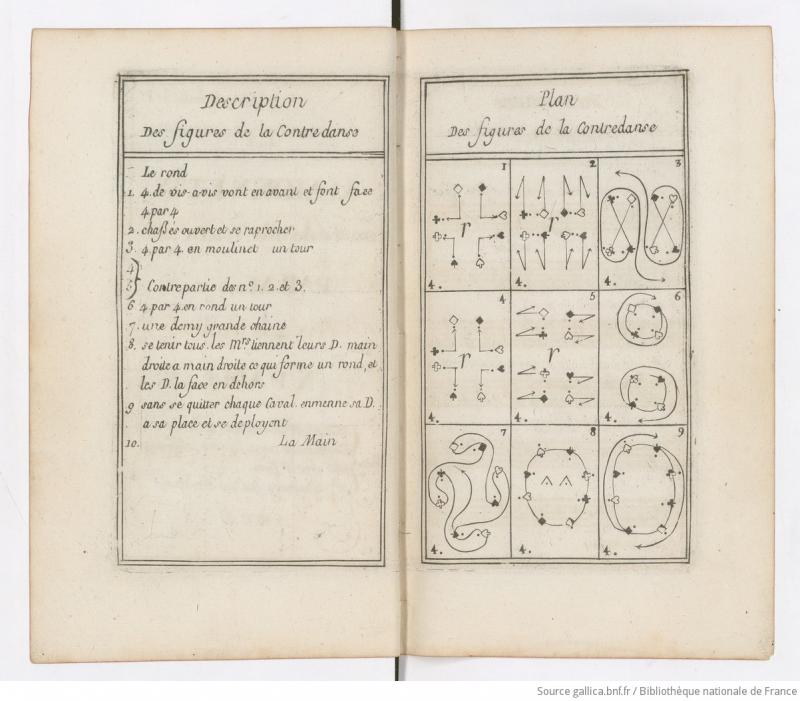 Description
Des figures de la Contredanse
Le rond
1. 4. de vis-a-vis vont en avant et font face
4 par 4
2. chassés ouvert et se raprocher
3. 4 par 4. en moulinet un tour
4
5 Contrepartie des nos. 1. 2. et 3.
6 4 par 4. en rond un tour
7. une demy grande chaine
8. se tenir tous. les Mrs tiennent leurs D. main
droite a main droite ce qui forme un rond, et
les D. la face en dehors
9 sans se quitter chaque Caval. enmenne sa D.
a sa place et se deployent
10. La Main
Plan
Des figures de la Contredanse
1
r
4.
2
r
4.
3
4.
4
r
4.
5
r
4.
6
4.
7
4.
8
4.
9
4.
Source gallica.bnf.fr / Bibliothèque nationale de France